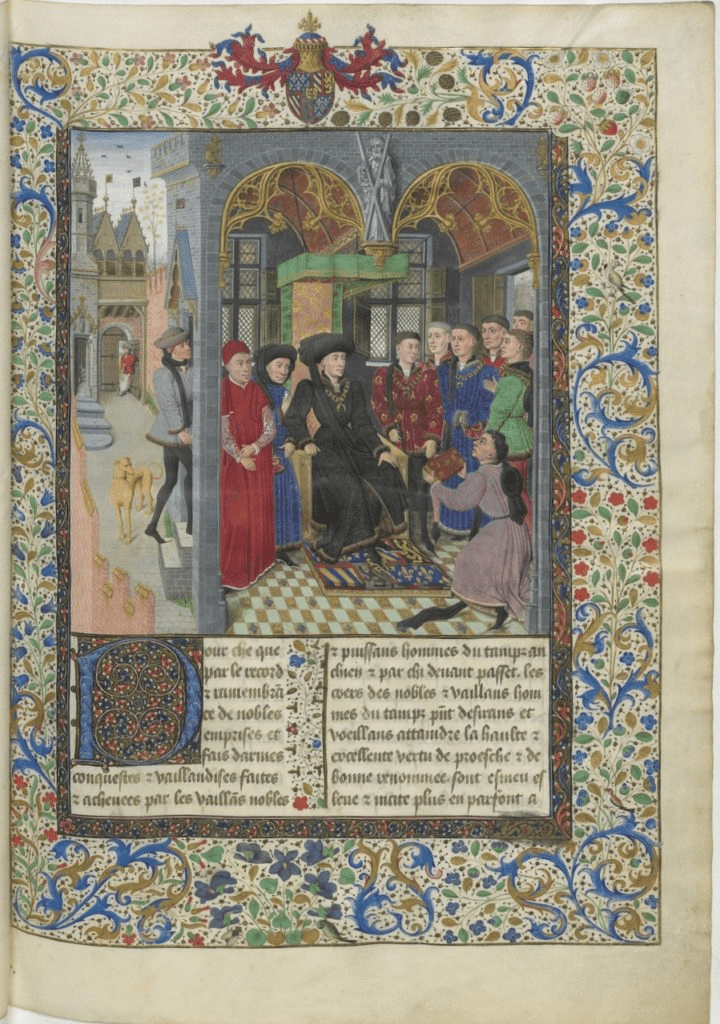 Pour che que
par le record
⁊ ramembrā
ce de nobles
emprises et
fais darmes
conquestes ⁊ vaillandises faites
⁊ acheuees par les vaillās nobles
⁊ puissans hommes du tamps an
chien ⁊ par chi deuant passet. les
coers des nobles ⁊ vaillans hom
mes du tamps pn̄t desirans et
voeillans attaindre la haulte ⁊
excellente vertu de proesche ⁊ de
bonne renommee. sont esmeu es
leue ⁊ incite plus en parfont a